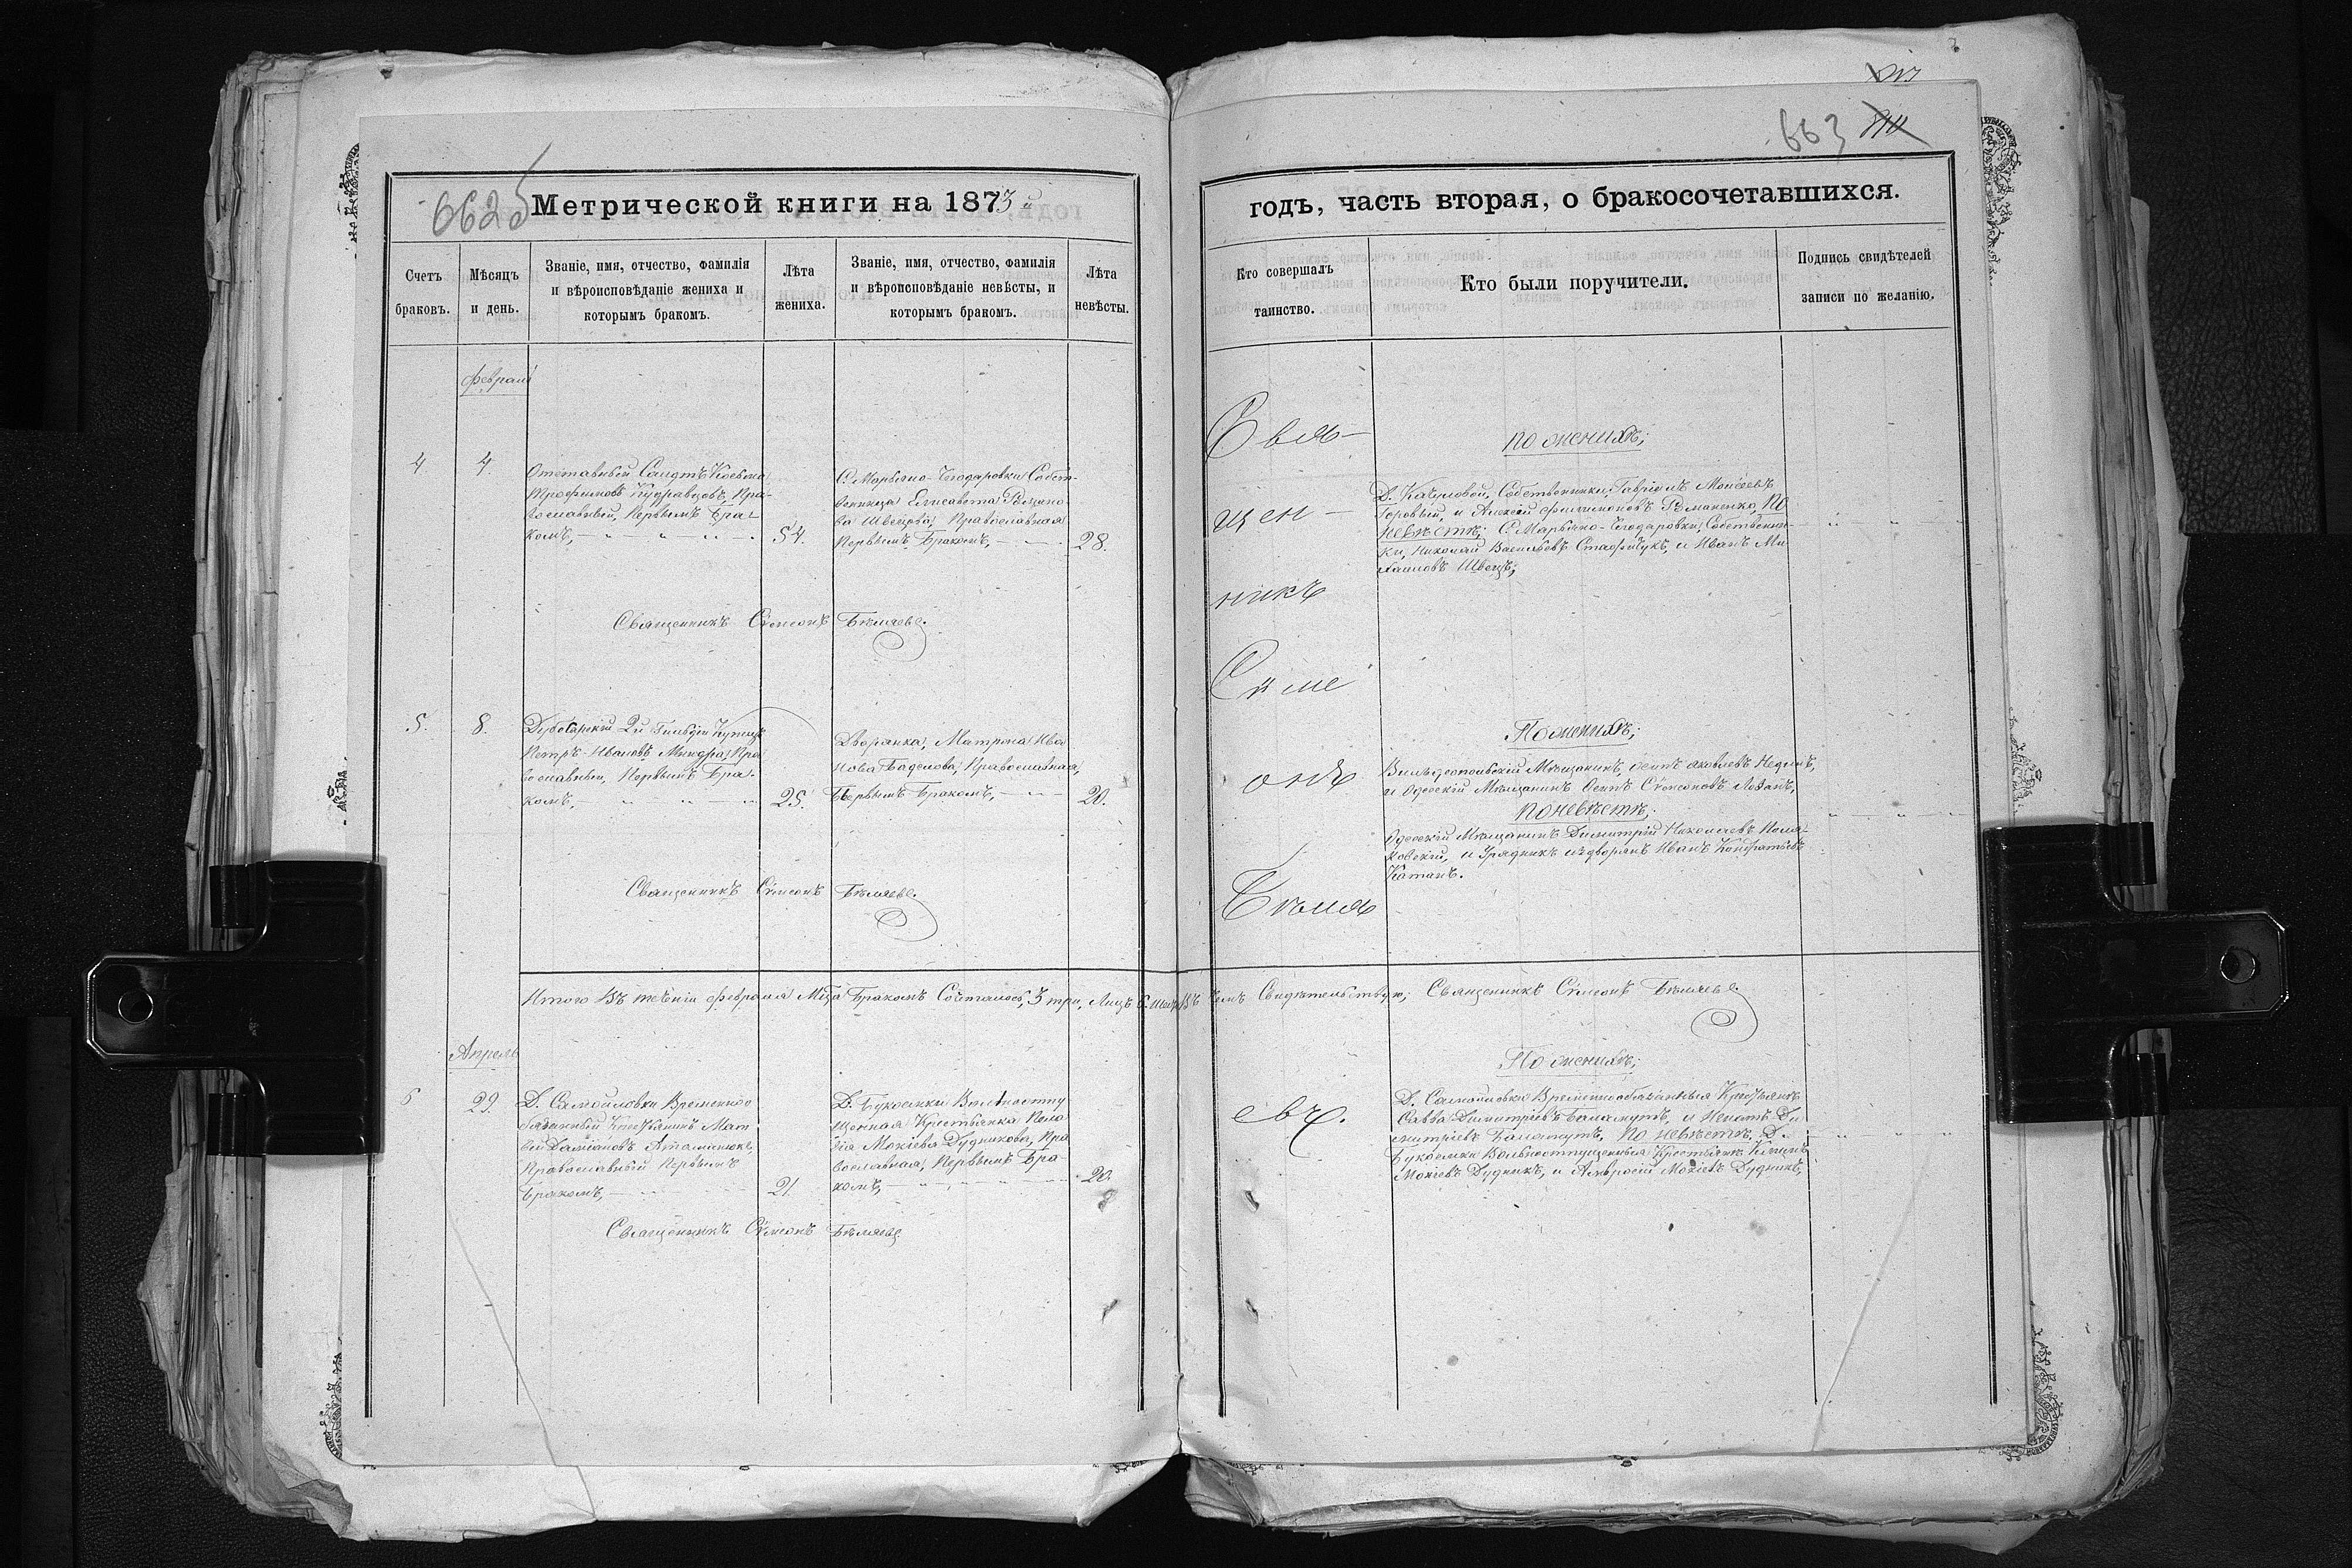 663
6625
Метрической книги на 1873й
годъ, часть вторая, о бракосочетавшихся.
Счетъ браковъ.
Мѣсяцъ и день.
Званіе, имя, отчество, фамилія и вѣроисповѣданіе жениха и которымъ бракомъ.
Лѣта жениха.
Званіе, имя, отчество, фамилія и вѣроисповѣданіе невѣсты, и которымъ бракомъ.
Лѣта невѣсты.
Кто совершалъ таинство.
Кто были поручители.
Подпись свидѣтелей записи по желанію.
Февраль
4.
4.
Отставный Козьма
Трофимовъ Кудрявцовъ, Пра-
вославный, Первымъ Бра-
комъ,
54.
С. Марьяно-Чогодаровки Собст-
венница Елисавета
ва Швецова, Православная
Первымъ Бракомъ,
28.
По женихѣ;
Д. Качуловой, Собственники, Гавріилъ Моисеевъ
Горовый, и Алексѣй Филимоновъ Романенко, По
невѣстѣ; С. Марьяно-Чогодаровки, Собственни-
ки, Николай Васильевъ и Иванъ Ми-
хаиловъ Швецъ;
Священникъ Сѵмеонъ Бѣляевъ.
5.
8.
Дубосарскій 2й Гильдіи Купецъ
Петръ Ивановъ Пра-
вославный, Первымъ Бра-
комъ,
25.
Дворянка, Матрона Ива-
нова Православная,
Первымъ Бракомъ,
20.
По женихѣ;
Мѣщанинъ, Яковлевъ
и Одесскій Мѣщанинъ Осипъ Сѵмеоновъ
По невѣстѣ;
Одесскій Мѣщанинъ Димитрій Николаевъ Поля-
ковскій, и Урядникъ издворянъ Иванъ Кондратьевъ
Катанъ.
Священникъ Сѵмеонъ Бѣляевъ.
Свя-
щен-
никъ
Сѵме
онъ
Бѣля
евъ.
Итого Въ теченіи Февраля Мѣца Бракомъ Сочталось, 3 три, Лицъ 6. шесть Въ чемъ Свидѣтельствую; Священникъ Сѵмеонъ Бѣляевъ.
Апрель
6
29.
Д. Самойловки Временно
обязанный Крестьянинъ Мат
вѣй Даміановъ
Православный Первымъ
Бракомъ,
21
Д. Букоемки Вольноотпу
щенная Крестьянка Пела
гія Мокіева Дудникова, Пра
вославная, Первымъ Бра-
комъ,
20.
По женихѣ;
Д. Самойловки Временнообязанныя Крестьяне
Савва Димитріевъ Баламутъ, и Игнатъ Ди
митріевъ Баламутъ, По невѣстѣ, Д.
Букоемки Вольноотпущенныя Крестьяне
Мокіевъ Дудникъ, и Амвросій Мокіевъ Дудникъ,
Священникъ Сѵмеонъ Бѣляевъ